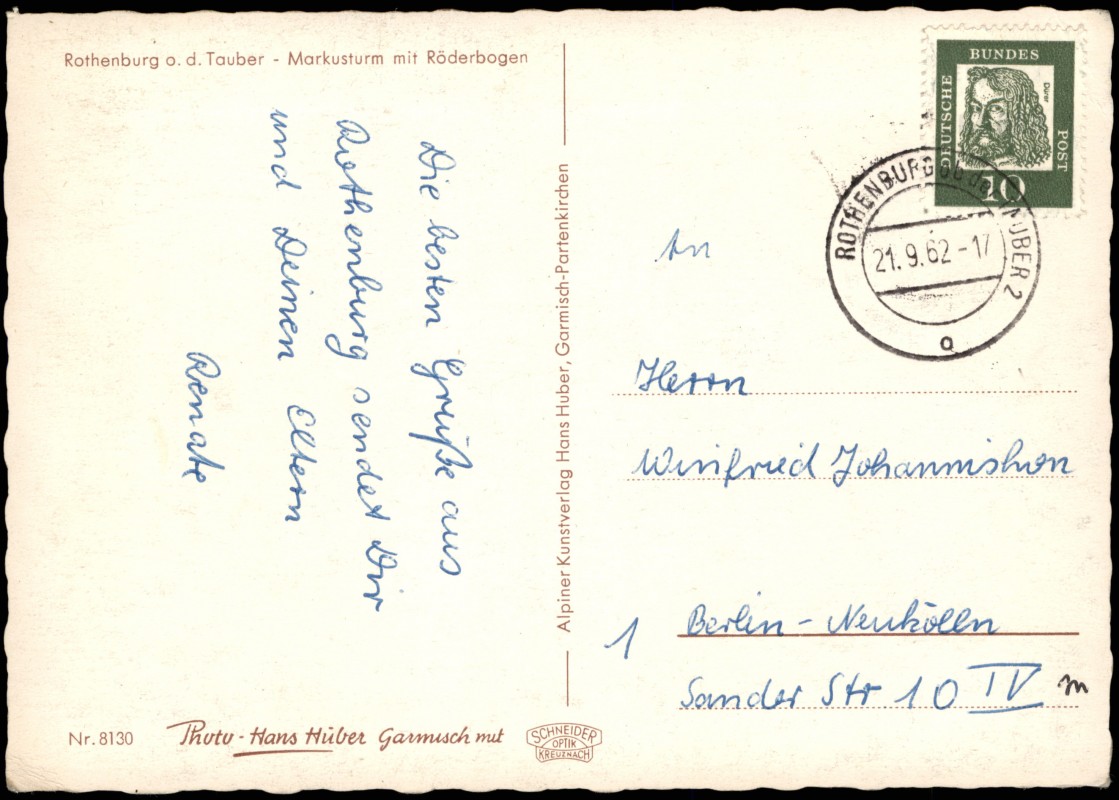 Rothenburg o. d. Tauber - Markusturm mit Röderbogen
Die besten Grüße aus
Rothenburg sendet Dir
und Deinen Eltern
Renate
Alpiner Kunstverlag Hans Huber, Garmisch-Partenkirchen
DEUTSCHE
BUNDES
POST
Dürer
10
ROTHENBURG ob der TAUBER 2
21.9.62-17
a
An
Herrn
Winfried Johannishon
1 Berlin - Neukölln
Sander Str 10 IV
m
Nr. 8130
Photo - Hans Huber Garmisch mit
SCHNEIDER
OPTIK
KREUZNACH